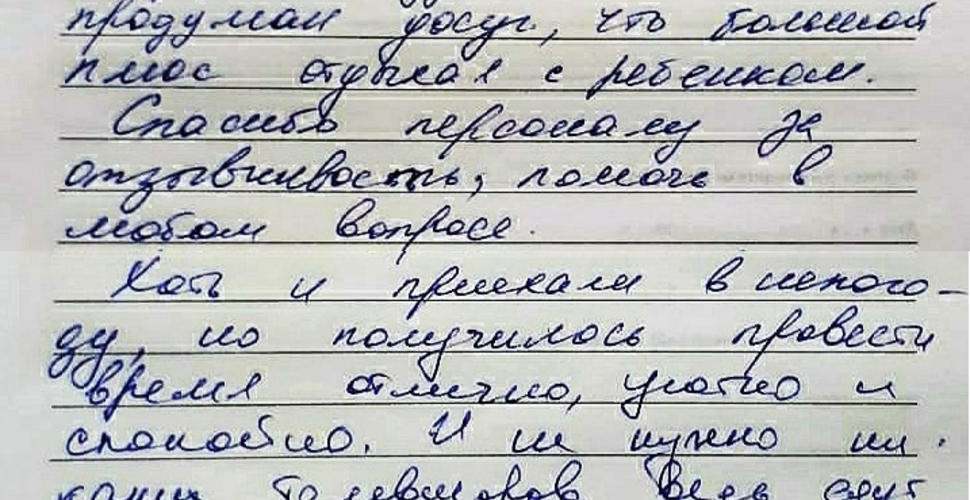 продуман досуг, что большой
плюс отдыхая с ребенком.
Спасибо персоналу за
отзывчивость, помощь в
любом вопросе.
Хоть и приехали в непого-
ду, но получилось провести
время отлично, уютно и
спокойно. И не нужно ни-
каких Ведь